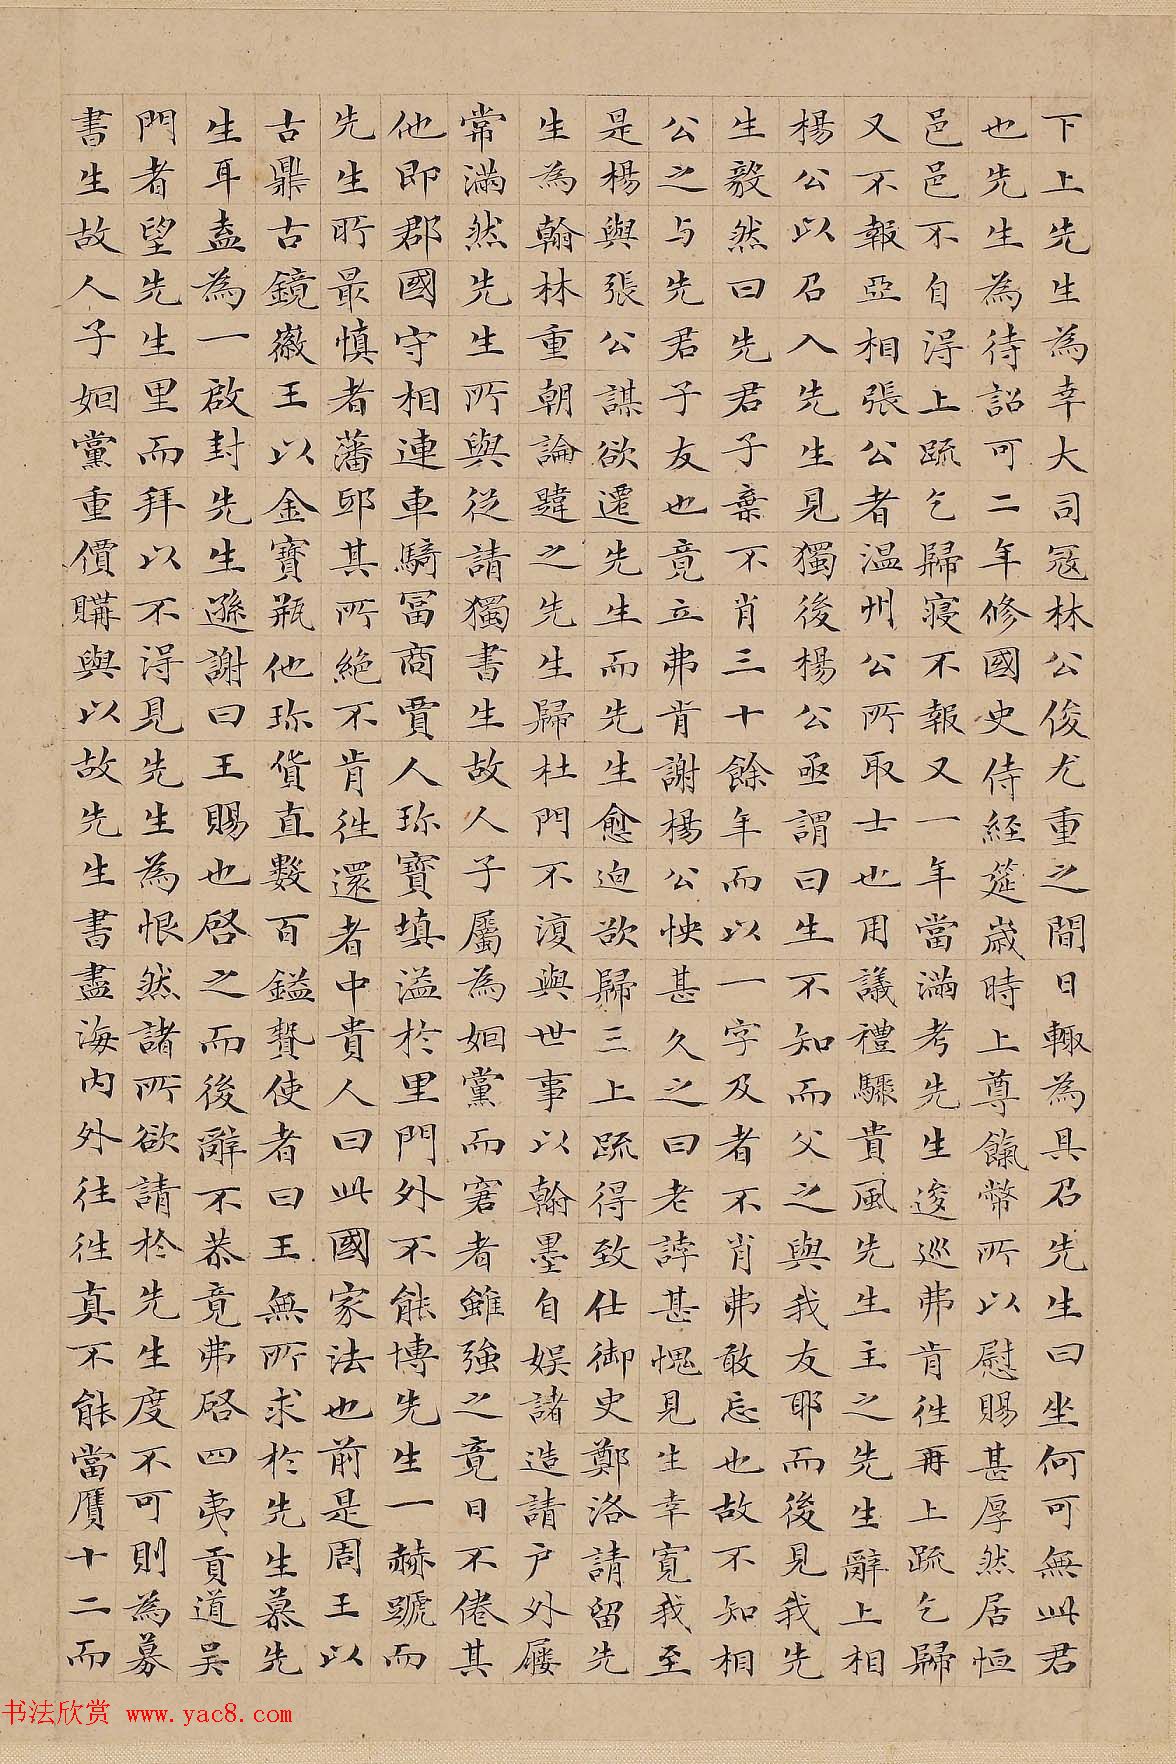 下上先生為幸大司冦林公俊尤重之間日輙為具召先生曰坐何可無此君
也先生為待詔可二年修國史侍経筵歳時上尊餼幣所以慰賜甚厚然居恒
邑邑不自淂上䟽乞歸寢不報又一年當滿考先生逡巡弗肯徃再上䟽乞歸
又不報亞相張公者温州公所取士也用議禮驟貴風先生主之先生辭上相
楊公以召入先生見獨後楊公亟謂曰生不知而父之與我友耶而後見我先
生毅然曰先君子棄不肖三十餘年而以一字及者不肖弗敢忘也故不知相
公之与先君子友也竟立弗肯謝楊公怏甚久之曰老誖甚愧見生幸寛我至
是楊與張公謀欲遷先生而先生愈迫欲歸三上䟽得致仕御史鄭洛請留先
生為翰林重朝論韙之先生歸杜門不復與世事以翰墨自娱諸造請户外屨
常滿然先生所與從請獨書生故人子屬為姻黨而窘者雖強之竟日不倦其
他即郡國守相連車騎冨商賈人珎寶填溢於里門外不能博先生一赫蹏而
先生所最慎者藩邸其所絶不肯徃還者中貴人曰此國家法也前是周王以
古鼎古鏡徽王以金寶瓶他珎貨直數百鎰贄使者曰王無所求於先生慕先
生耳盍為一啟封先生遜謝曰王賜也啓之而後辭不恭竟弗啓四夷貢道吴
門者望先生里而拜以不淂見先生為恨然諸所欲請於先生度不可則為募
書生故人子姻黨重價購與以故先生書盡海内外往徃真不能當贋十二而
书法欣赏 www.yac8.com